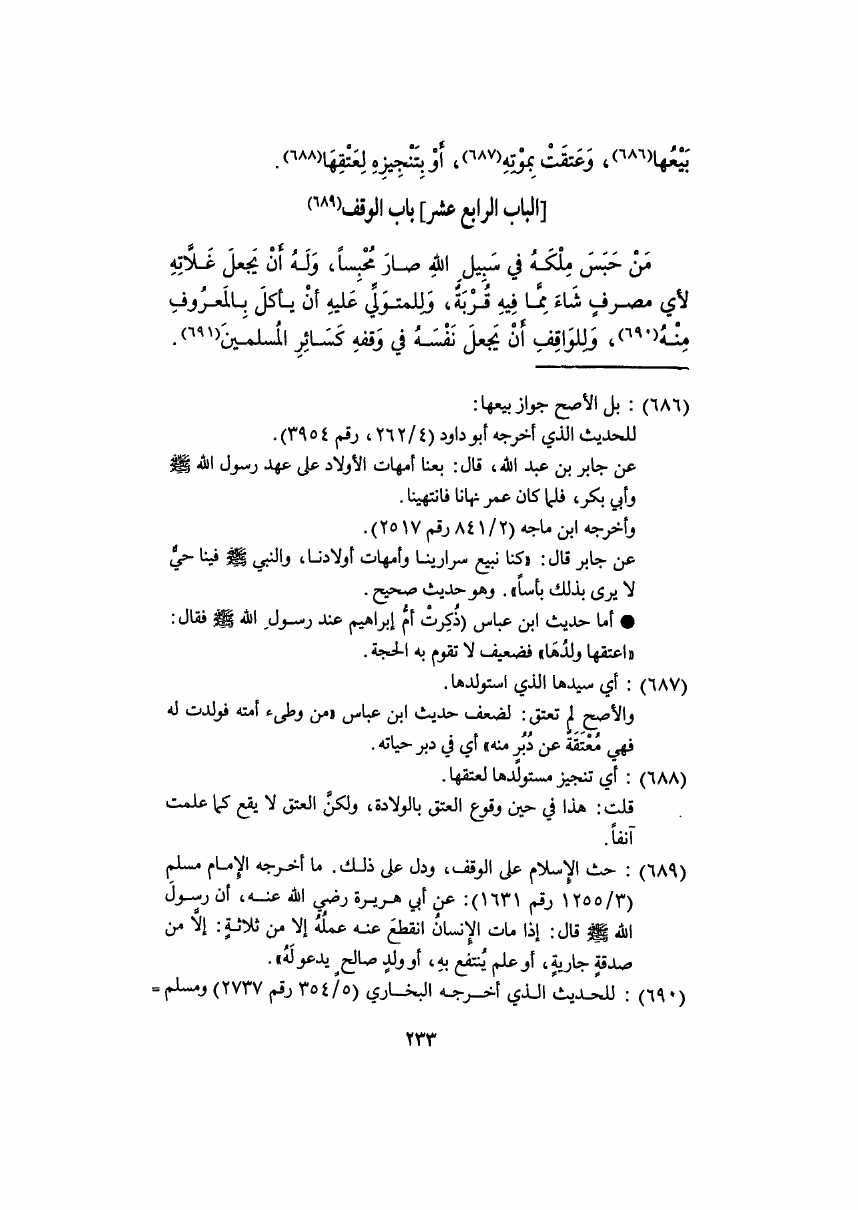 بَيْعُها(٦٨٦)، وَعَتقَتْ بمِوْتِهِ(٦٨٧)، أَوْ بِتَنْجِيزِهِ لِعَتْقِهَا(٦٨٨).
[الباب الرابع عشر] باب الوقف(٦٨٩)
مَنْ حَبَسَ مِلْكَـهُ في سَبِيلِ اللهِ صـارَ مُحْبِساً، وَلَـهُ أَنْ يَجعلَ غَـلَّاتِهِ
لأي مصـرفٍ شَاءَ مِمَّا فِيهِ قُـرْبَةٌ، وَلِلمتـوَلِّي عَليهِ أنْ يـأكلَ بِـالمَعـرُوفِ
مِنْـهُ(٦٩٠)، وَلِلوَاقِفِ أَنْ يَجعلَ نَفْسَـهُ في وَقفهِ كَسَـائِرِ المُسلمـينَ(٦٩١).
(٦٨٦) : بل الأصح جواز بيعها:
للحديث الذي أخرجه أبو داود (٤/ ٢٦٢، رقم ٣٩٥٤).
عن جابر بن عبد الله، قال: بعنا أمهات الأولاد على عهد رسول الله ﷺ
وأبي بكر، فلما كان عمر نهانا فانتهينا.
وأخرجه ابن ماجه (٢/ ٨٤١ رقم ٢٥١٧).
عن جابر قال: «كنا نبيع سرارينـا وأمهات أولادنـا، والنبي ﷺ فينا حيٌّ
لا يرى بذلك بأساً». وهو حديث صحيح.
● أما حديث ابن عباس (ذُكِرتْ أمُّ إبراهيم عند رسـولِ الله ﷺ فقال:
«اعتقها ولدُهَا» فضعيف لا تقوم به الحجة.
(٦٨٧) : أي سيدها الذي استولدها.
والأصح لم تعتق: لضعف حديث ابن عباس «من وطىء أمته فولدت له
فهي مُعْتَقَةٌ عن دُبُرٍ منه» أي في دبر حياته.
(٦٨٨) : أي تنجيز مستولدها لعتقها.
قلت: هذا في حين وقوع العتق بالولادة، ولكنَّ العتق لا يقع كما علمت
آنفاً.
(٦٨٩) : حث الإسلام على الوقف، ودل على ذلـك. ما أخـرجه الإمـام مسلم
(٣/ ١٢٥٥ رقم ١٦٣١): عن أبي هـريـرة رضي الله عنـه، أن رسـولَ
الله ﷺ قال: إذا مات الإنسانُ انقطعَ عنـه عملُهُ إلا من ثلاثـةٍ: إلَّا من
صدقةٍ جاريةٍ، أو علم يُنتفع بهِ، أو ولدٍ صالحٍ يدعو لَهُ».
(٦٩٠) : للحـديث الـذي أخـرجـه البخـاري (٥/ ٣٥٤ رقم ٢٧٣٧) ومسلم =
٢٣٣